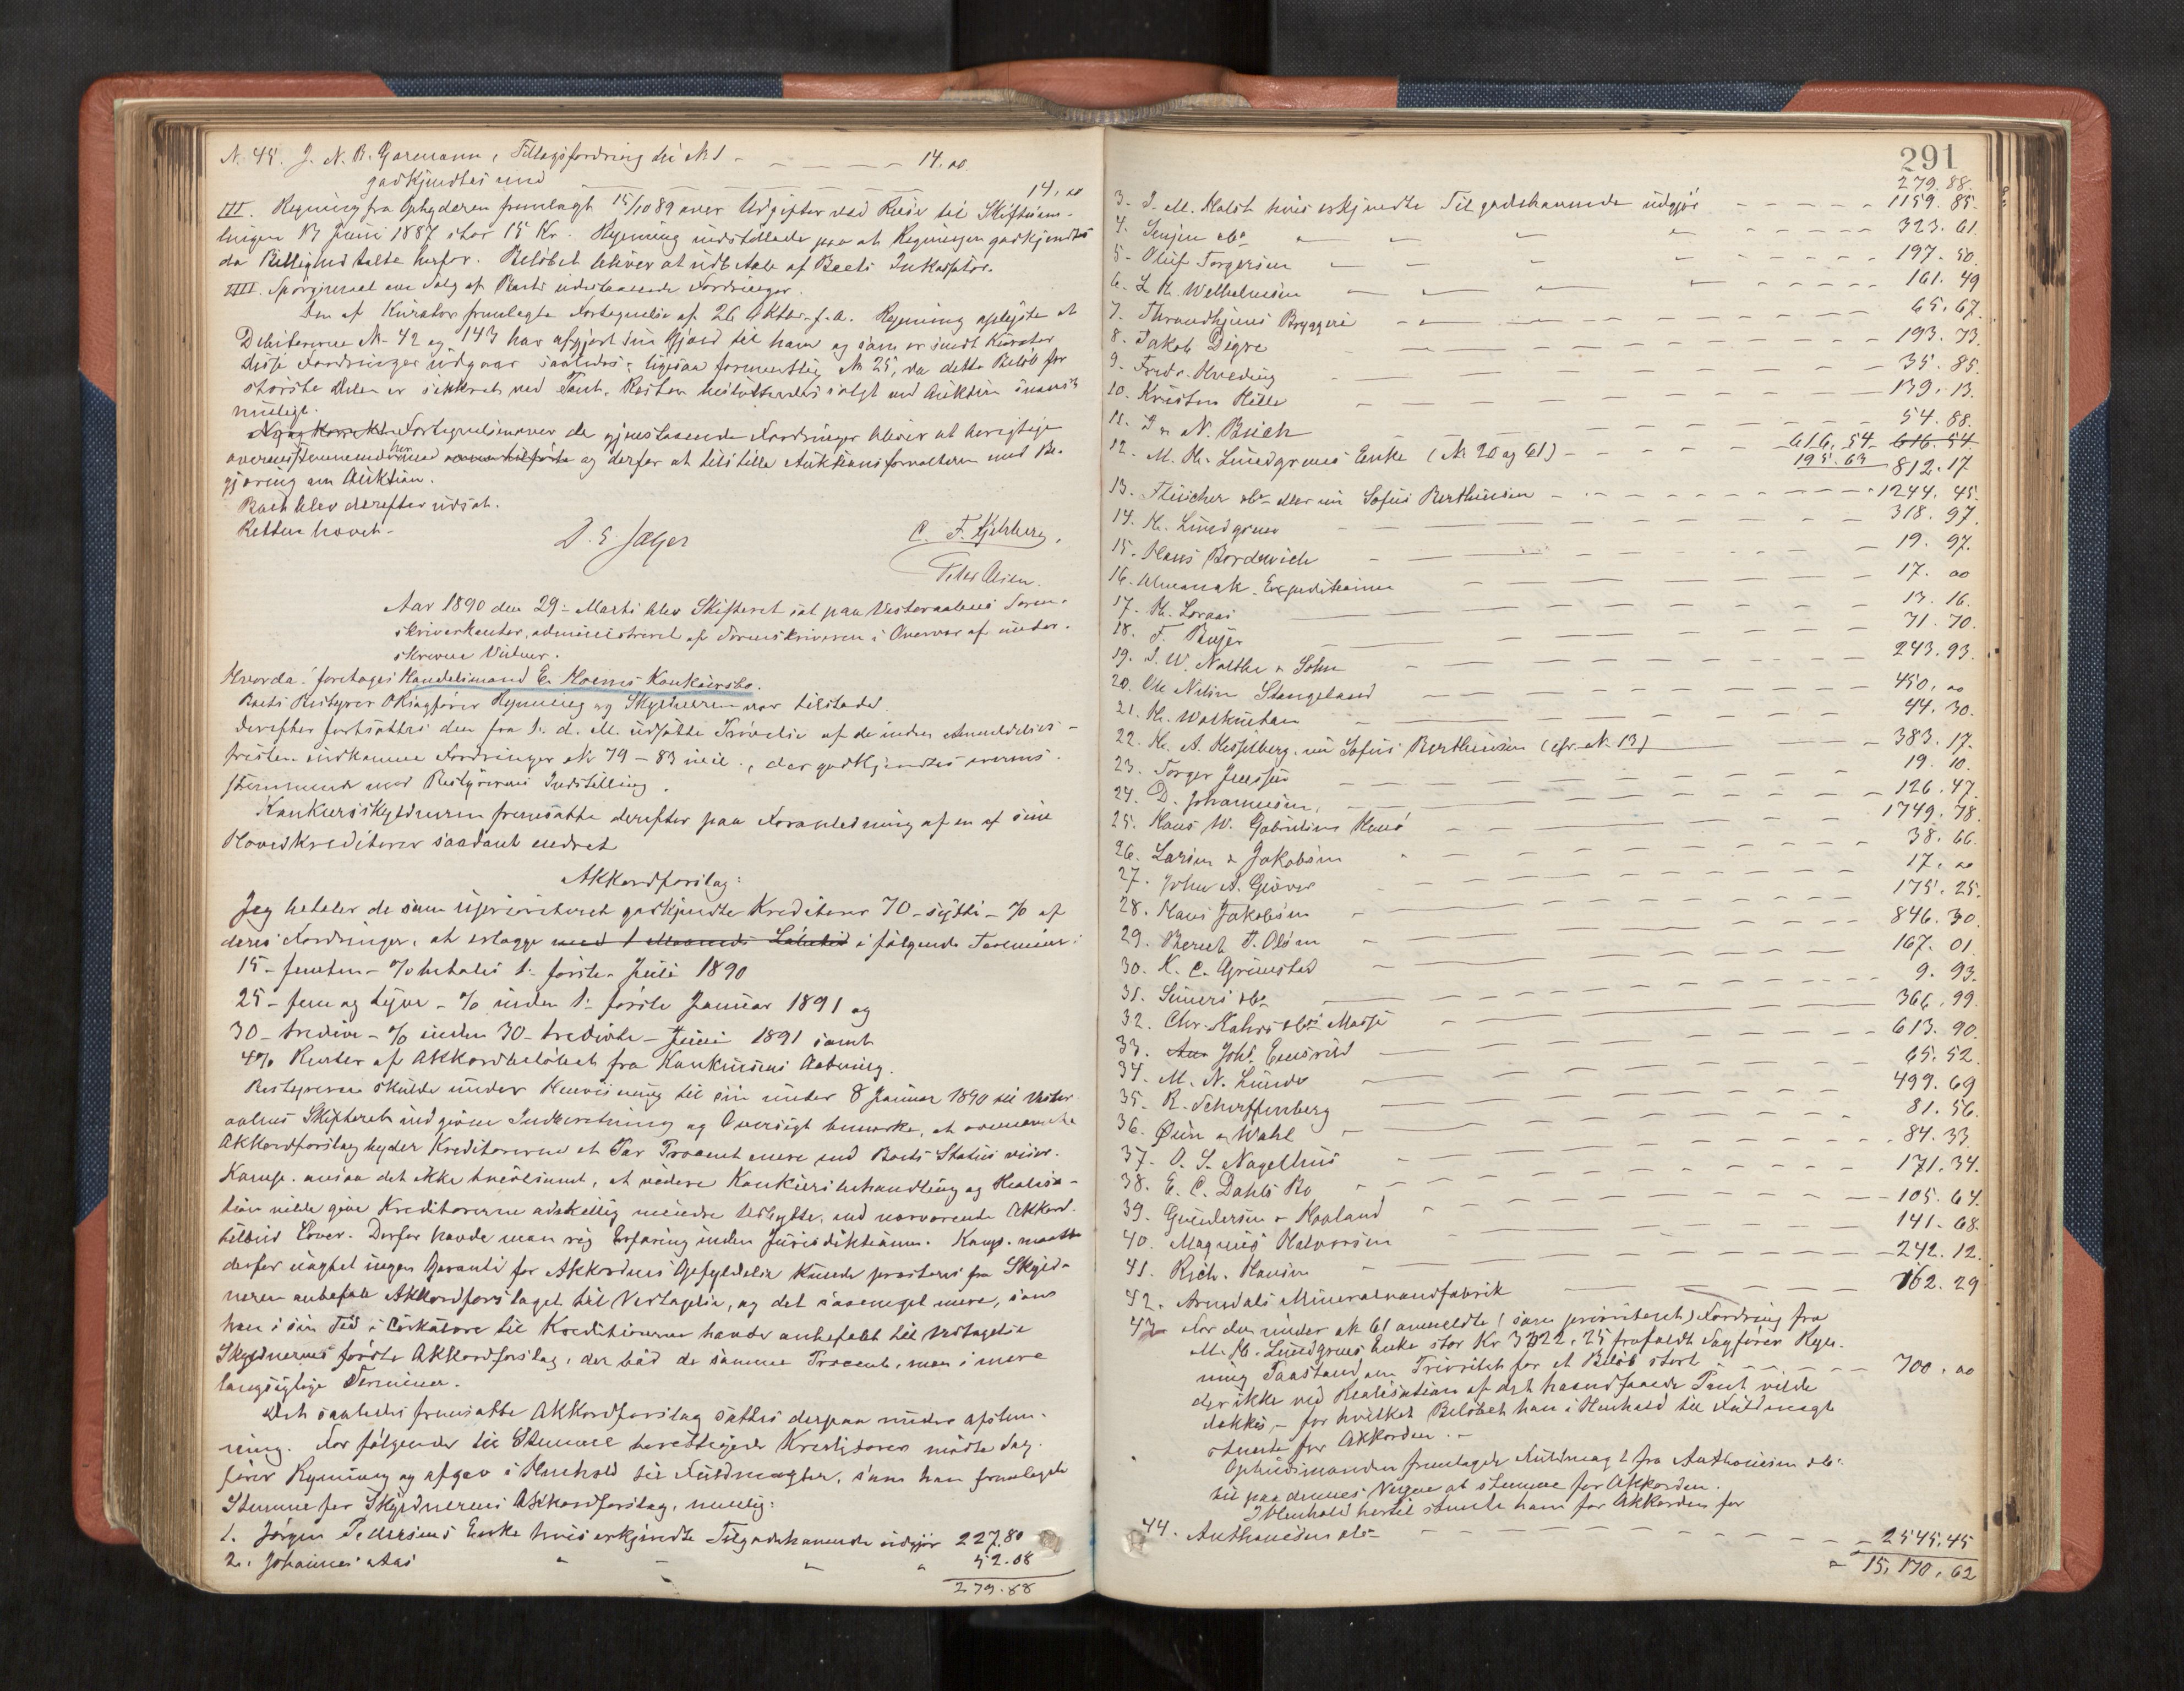 N. 45. J. N. B. Garmann, Tillægsfordring til N 1 - - - - 14.00
godkjendtes med 14,00
III. Regning fra Ophyderen fremlagt 15/10 89 over Udgifter ved Reise til Skiftesam-
lingen 13 Juni 1887 stor 15 Kr. Rynning indstillede paa at Regningen godkjendtes
da Billighed talte herfor. Beløbet bliver at udbetale af Boets Inkassator.
IIII. Spørgsmaal om Salg af Boets udestaaende Fordringer.
Den af Kurator fremlagte Fortegnelse af 26 Oktbr. f. A. Rynning oplyste at
Debitorerne N. 42 og 143 har afgjort sin Gjæld til ham og som er sendt Kurator
disse Fordringer udgaar saaledes; ligesaa formentlig N 25, da dette Beløb for
største Delen er sikkret ved Pant. Resten besluttedes solgt ved Auktion snarest
muligt.
Fortegnelsen over de gjenstaaende Fordringer bliver at berigtige
overensstemmende hermed og derfor at tilstille Auktionsforvalteren med Be-
gjæring om Auktion.
Boet blev derefter udsat.
Retten hævet.
D. S. Jæger C. F. Kjelsberg,
Peter Olsen.
Aar 1890 den 29- Marts blev Skifteret sat paa Vesteraalens Soren-
skriverkontor, administreret af Sorenskriveren i Overvær af under-
skrevne Vidner.
Hvorda: foretoges Handelsmand E. Holms Konkursbo.
Boets Bestyrer O Sagfører Rynning og Skyldneren var tilstede.
Derefter fortsattes den fra 1. d. M. udsatte Prøvelse af de inden Anmeldelses-
fristen indkomne Fordringer N 79 - 83 incl., der godkjendtes overens-
stemmende med Bestyrerens Indstilling.
Konkursskyldneren fremsatte derefter paa Foranledning af en af sine
Hovedkreditorer saadant endret
Akkordforslag:
Jeg betaler de som uprioriteret godkjendte Kreditorer 70 - sytti - % af
deres Fordringer, at erlægge med 1 Maaneds Løbetid i følgende Terminer:
15 - femten - % betales 1- første - Juli 1890
25 - fem og tyve - % inden 1- første Januar 1891 og
30 - tredive - % inden 30 - tredivte - Juni 1891 samt
4% Renter af Akkordbeløbet fra Konkursens Aabning.
Bestyreren skulde under Henvisning til sin under 8 Januar 1890 til Vester-
aalens Skifteret indgivne Indberetning og Oversigt bemærke, at ovennævnte
Akkordforslag byder Kreditorerne et Par Procent mere end Boets Status viser.
Komp. ansaa det ikke tvivlsomt, at videre Konkursbehandling og Realisa-
tion vilde give Kreditorerne adskillig mindre Udbytte, end nærværende Akkord-
tilbud lover. Derfor havde man rig Erfaring inden Jurisdiktionen. Komp. maatte
derfor uagtet ingen Garanti for Akkordens Opfyldelse kunde præsteres fra Skyld-
neren anbefale Akkordforslaget til Vedtagelse, og det saameget mere, som
han i sin Tid i Cirkulære til Kreditorerne havde anbefalt til Vedtagelse
Skyldnerens første Akkordforslag, der bød de samme Procent, men i mere
langsigtige Terminer.
Det saaledes fremsatte Akkordforslag sattes derpaa under Afstem-
ning. For følgende til Stemme berettigede Kreditorer mødte Sag-
fører Rynning og afgav i Henhold til Fuldmagter, som han fremlagde
Stemme for Skyldnerens Akkordforslag, nemlig:
1. Jørgen Pedersens Enke hvis erkjendte Tilgodehavende udgjør 227.80
2. Johannes Aas 52.08
279.88
291
279.88.
3. J. M. Holst hvis erkjendte Tilgodehavende udgjør - - - - 1159.85.
4. Jensen &Co - - - - 323.61.
5. Oluf Torgersen - - - - 197.50.
6. L. H. Wilhelmsen - - - - 161.49
7. Throndhjems Bryggeri - - - - 65.67.
8. Jakob Digre - - - - 193.73.
9. Fredr. Kneding - - - - 35.85.
10. Kristen Hille - - - - 139.13.
11. J. N. Buch - - - - 54.88.
12. M. H. Lundgrens Enke (N. 20 og 61) - - - - 616.54 616.54
195.63 812.17
13. Fleischer &Co eller nu Sofus Berthinsen - - - - 1244.45.
14. H. Lundgren - - - - 318.97.
15. Hans Borderich - - - - 19.97.
16. Almanak-Expeditionen - - - - 17.00
17. H. Loraas - - - - 13.16.
18. F. Beyer - - - - 71.70.
19. J. W. Nolthe & Sohn - - - - 243.93.
20. Ole Nilsen Stangeland - - - - 450,00
21. H. Walknitam - - - - 44.30.
22. H. A. Hesselberg. nu Sofus Berthinsen (cfr. N. 13) - - - - 383.17.
23. Torger Jenssen - - - - 19.10.
24. D. Johannesen, - - - - 126.47.
25. Hans W. Gabrielsens Hans - - - - 1749.78.
26. Larsen & Jakobsen - - - - 38.66.
27. John A. Giæver - - - - 17.00
28. Hans Jakobsen - - - - 175.25.
29. Bernt J. Olsen - - - - 846.30.
30. K. C. Grimstad - - - - 167.01.
31. Siemers &Co - - - - 9.93.
32. Chr. Kahrs &Co's Masse - - - - 366.99.
33. Johs. Ensrud - - - - 613.90.
34. M. N. Lunde - - - - 65.52.
35. R. Scheffenberg - - - - 499.69
36. Øien & Wahl - - - - 81.56.
37. O. S. Nagelhus - - - - 84.33.
38. E. C. Dahls Bo - - - - 171.34.
39. Gundersen & Haaland - - - - 105.64.
40. Magnus Halvorsen - - - - 141.68.
41. Rich. Hansen - - - - 242.12.
42. Arendals Mineralvandfabrik - - - - 162.29
43. For den under N 61 anmeldte (som prioriteret) Fordring fra
M. H. Lundgrens Enke stor Kr 3722.25 frafaldt Sagfører Ryn-
ning Paastand om Prioritet for et Beløb stort - - - - 700,00
der ikke ved Realisation af det haandfaaede Pant vilde
dækkes, - for hvilket Beløbet han i Henhold til Fuldmagt
stemte for Akkorden. -
Ophudsmanden fremlagde Fuldmagt fra Anthonisen &Co
til paa dennes Vegne at stemme for Akkorden.
I Henhold hertil stemte han for Akkorden for
44. Anthonisen &Co - - - - 2545.45
15,170,62